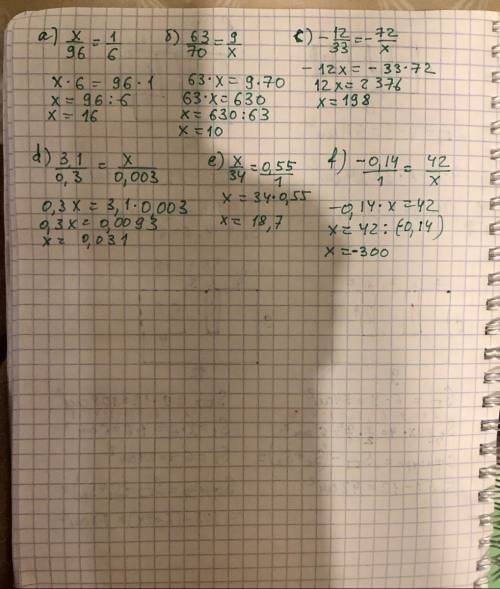 a) x/96 = 1/6
x · 6 = 96 · 1
x = 96 : 6
x = 16
б) 63/70 = 9/x
63 · x = 9 · 70
63 · x = 630
x = 630 : 63
x = 10
c) -12/33 = -72/x
-12x = -33 · 72
12x = 2376
x = 198
d) 3,1/0,3 = x/0,003
0,3x = 3,1 · 0,003
0,3x = 0,0093
x = 0,031
e) x/34 = 0,55/1
x = 34 · 0,55
x = 18,7
f) -0,14/1 = 42/x
-0,14 · x = 42
x = 42 : (-0,14)
x = -300